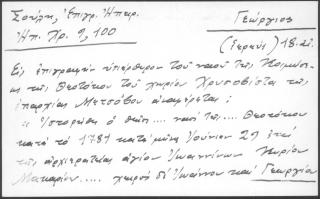 Σούλη, Ἐπιγρ. Ἠπειρ.
Γεώργιος
Ἠπ. Χρ. 9, 100
(ἱερεὺς) 18. αἰ.
Εἰς ἐπιγραφὴν ὑπέρθυρον τοῦ ναοῦ τῆς Κοιμήσε-
ως τῆς Θεοτόκου τοῦ χωρίου Χρυσοβίτσα τῆς
ἐπαρχίας Μετσόβου ἀναφέρεται:
« Ἱστορήθη ὁ θεῖος .... ναὸς τῆς .... Θεοτόκου
κατὰ τὸ 1781 κατὰ μῆνα Ἰούνιον 29 ἐπὶ
τῆς ἀρχιερατείας ἁγίου Ἰωαννίνων Κυρίου
Μακαρίου ..... χειρὸς δι' Ἰωάννου καὶ Γεωργίου